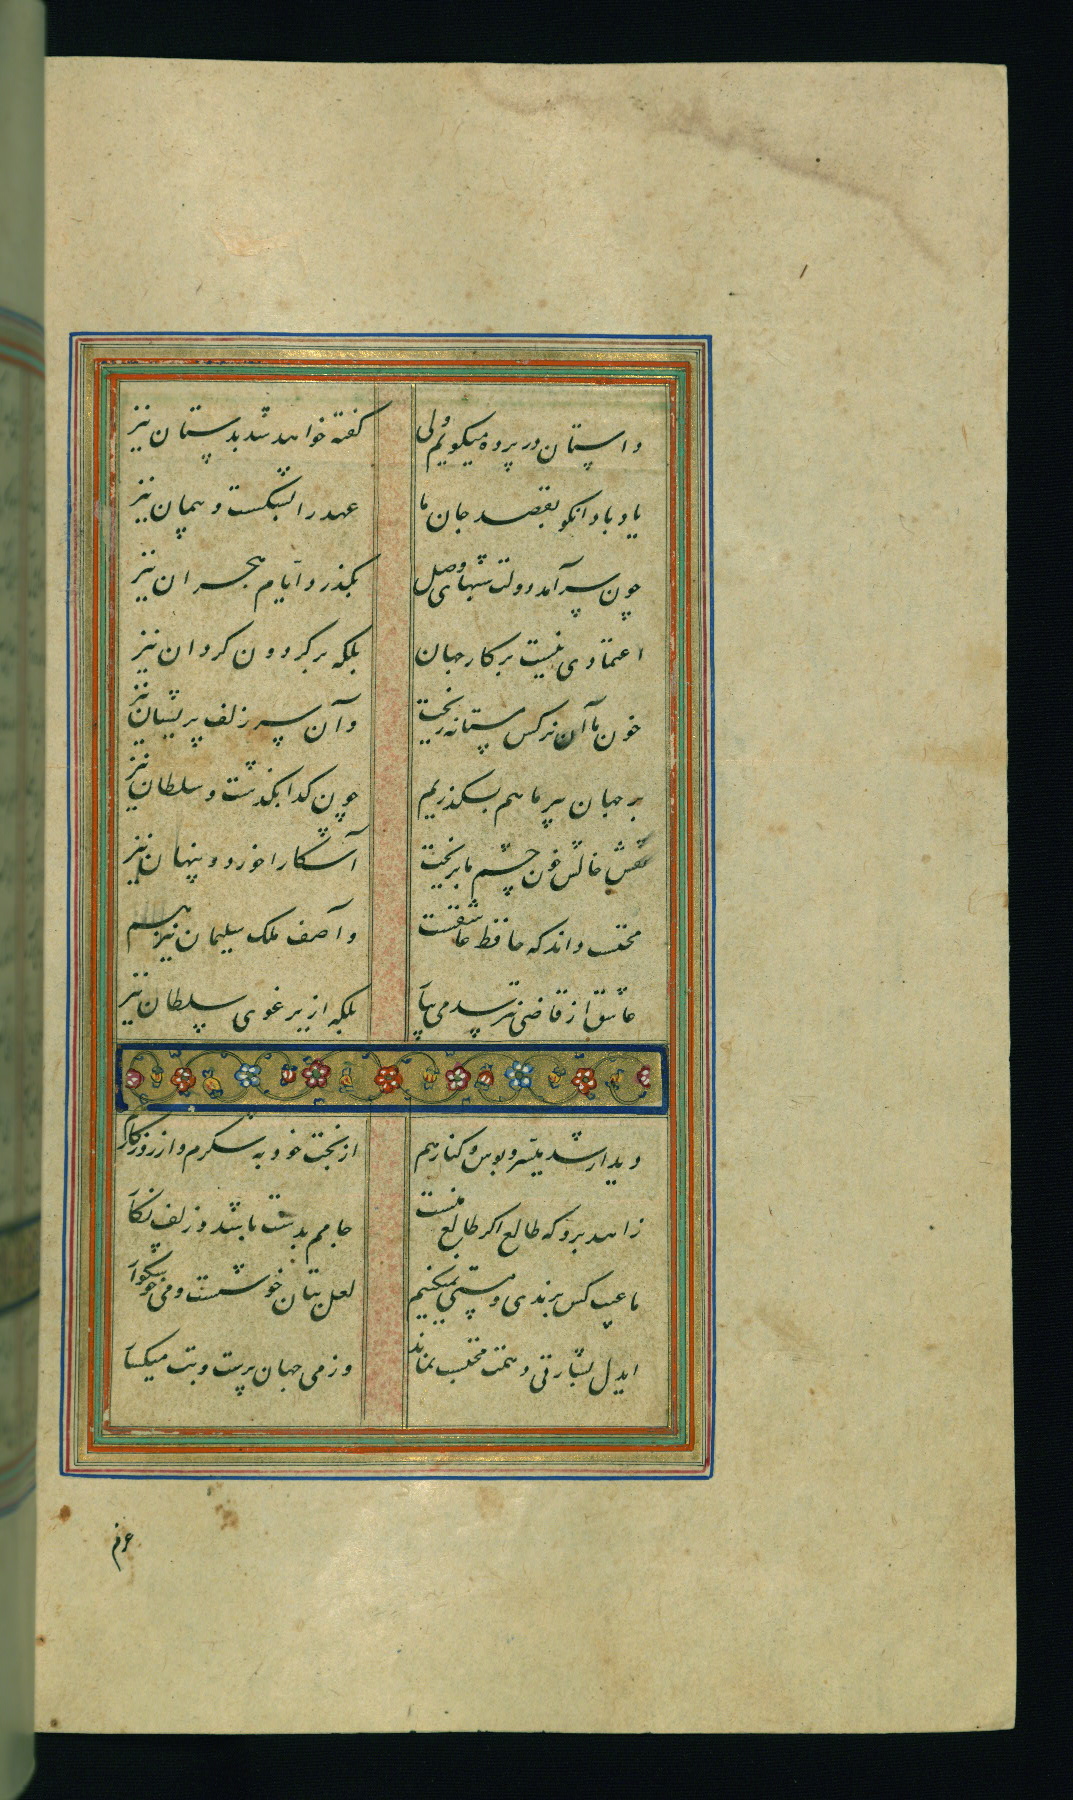 داستان در پرده میگویم ولی کفته خواهد شد بدستان نیز
یاد باد انکو بقصد جان ما عهد را بشکست و پیمان نیز
چون سر آمد دولت شبهای وصل بکذرد ایام هجران نیز
اعتمادی نیست بر کار جهان بلکه بر کردون کردان نیز
خون ما آن نرکس مستانه ریخت و آن سر زلف پریشان نیز
بر جهان سر ما هم بسکذریم چون کدا بکذشت و سلطان نیز
نقش خالش خون چشم ما بریخت آشکارا خورد و پنهان نیز
محتسب داند که حافظ عاشقست و آصف ملک سلیمان نیز هم
عاشق از قاضی نترسد می بیا بلکه از یرغوی سلطان نیز
دیدار شد میسر و بوس و کنار هم از بخت خود به شکرم و از روزکار
زاهد برو که طالع اکر طالع منست جامم بدست باشد و زلف نکار
ما عیب کس برندی و مستی نمیکنیم لعل بتان خوشست و می خوشکوار
ایدل بشارتی دهمت محتسب نماند و ز می جهان پرست و بت میکسار